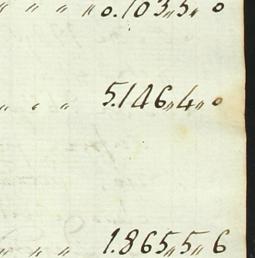 " " " " 0.103,,5,, 0
" " " 5.146,,4,, 0
" " " 1.865,,5,, 6